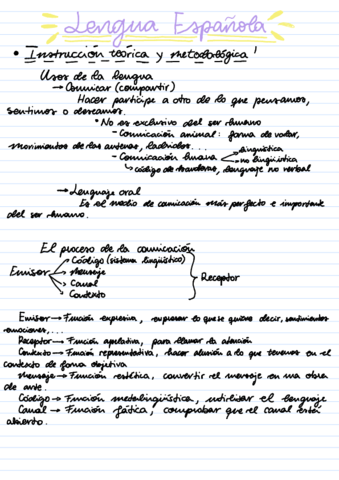 Lengua Española
• Instrucción teórica y metodológica
Usos de la lengua
→ Comunicar (compartir)
Hacer partícipe a otro de lo que pensamos,
sentimos o deseamos.
• No es exclusivo del ser humano
- Comunicación animal: forma de volar,
movimientos de las antenas, ladridos...
- Comunicación humana → lingüística
→ no lingüística
↳ código de banderas, lenguaje no verbal
→ Lenguaje oral
Es el medio de comunicación más perfecto e importante
del ser humano.
El proceso de la comunicación
Emisor
Código (sistema lingüístico)
Mensaje
Canal
Contexto
Receptor
Emisor → Función expresiva, expresar lo que se quiere decir, sentimientos
emociones,...
Receptor → Función apelativa, para llamar la atención
Contexto → Función representativa, hacer alusión a lo que tenemos en el
contexto de forma objetiva
Mensaje → Función estética, convertir el mensaje en una obra
de arte.
Código → Función metalingüística, utilizar el lenguaje
Canal → Función fática, comprobar que el canal está
abierto.